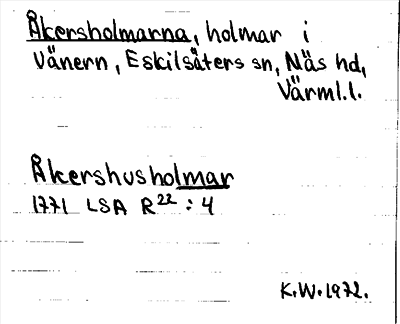 Åkersholmarna, holmar i
Vänern, Eskilsäters sn, Näs hd,
Värml.l.
Åkershusholmar
1771 LSA R22:4
K.W.1972.